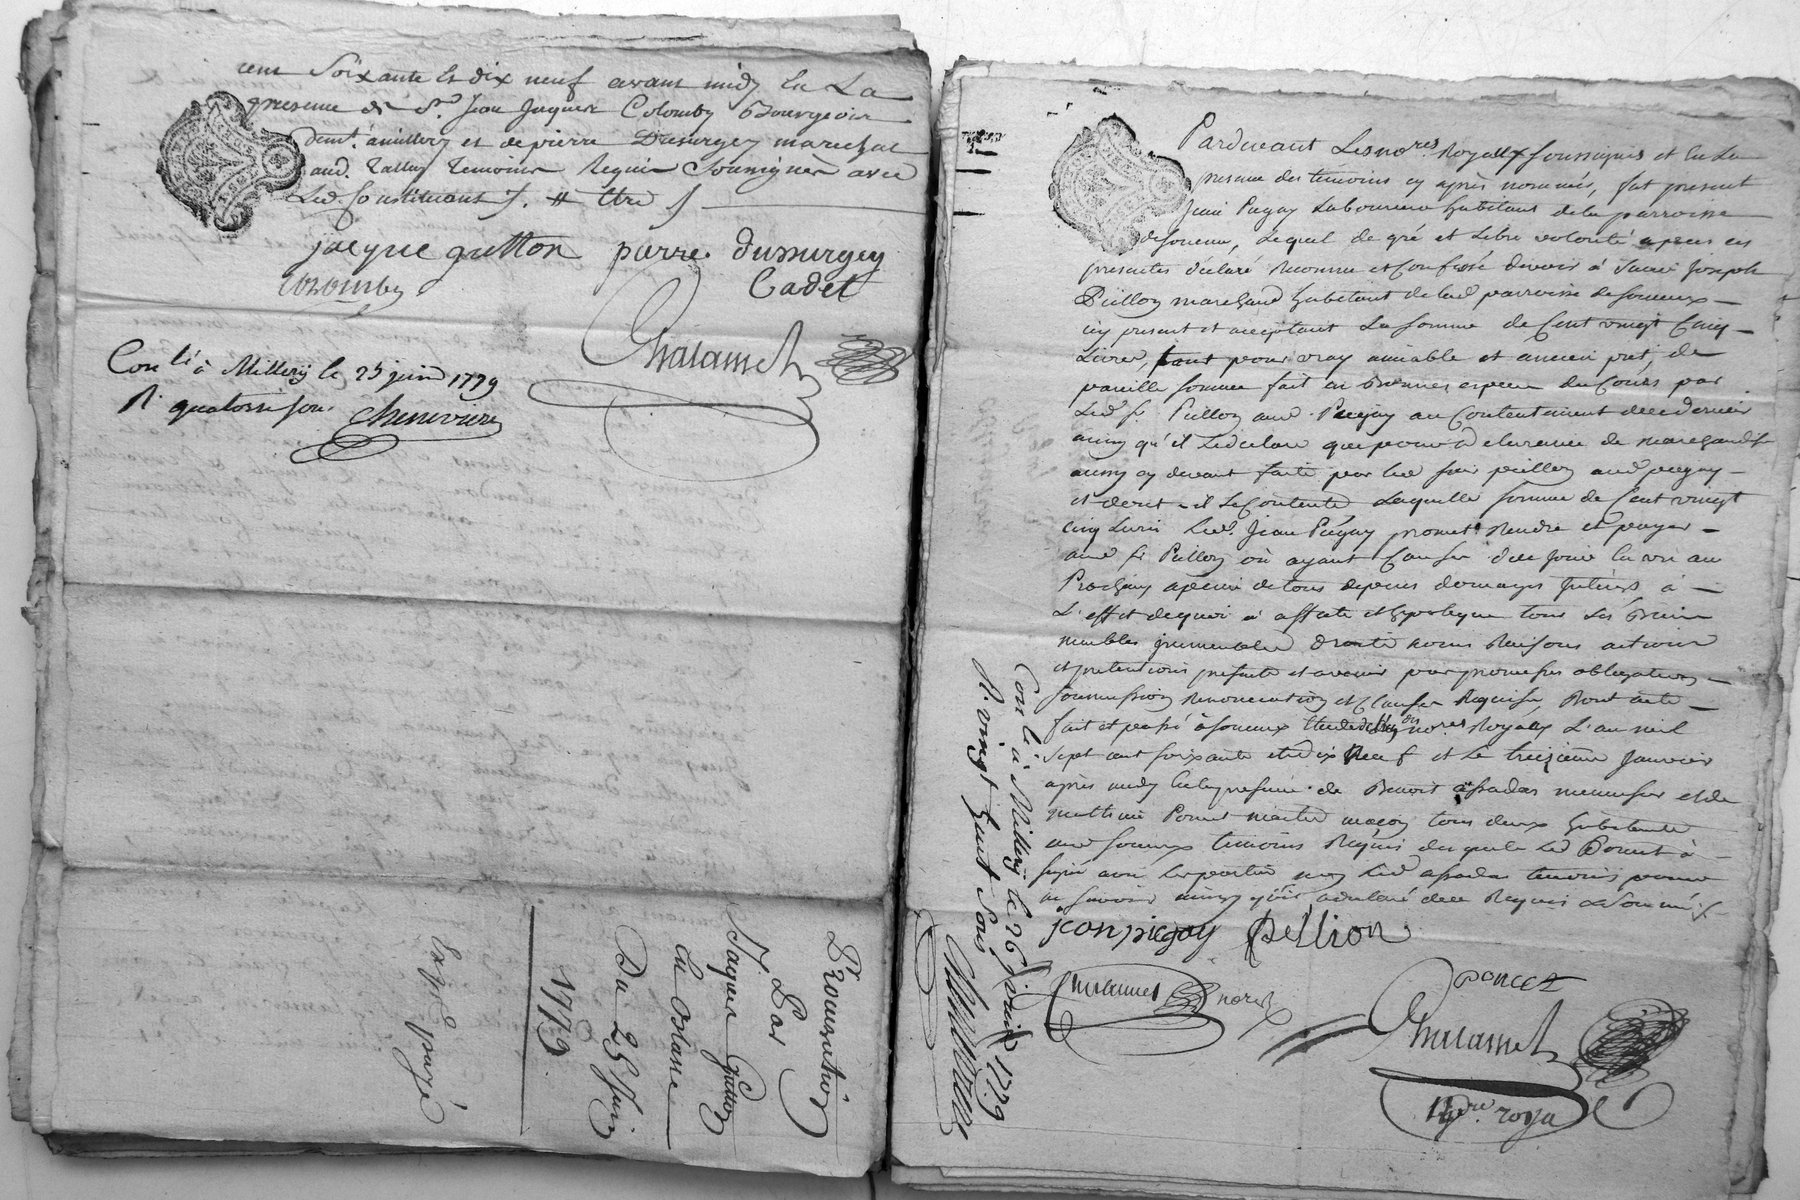 cent Soixante et dix neuf avant midy en La
presence de Sr. Jean Jaques Colomby Bourgeois
demt. a millery et de pierre Dumurgey marechal
aud. Temoins Requis Soussignés avec
Led Constituant
jacque gutton pierre dumurgey
Colomby Cadet
Chalamel
Con lé à Millery le 25 juin 1779
R. quatorze sous Chenevriere
Procuration
Par
Jaques Gutton
Du 25 Juin
1779
Pardevant Les nores. Royaux soussignés et en La
presence des temoins cy après nommés, fut present
Jean Pugay Laboureur habitant de la parroisse
de soucieu, Lequel de gré et Libre volonté a par ces
presentes déclaré Reconnu et Confessé devoir à Joseph
Pellion marchand habitant de lad parroisse de soucieux
icy present et acceptant La somme de Cent vingt Cinq
Livres, pour vray amiable et ancien pret de
pareille somme fait en Bonnes especes du Cours par
Led. Sr. Pellion aud. Pugay au Contentement de ce dernier
ainsy qu'il Le declare que pour delivrance de marchandises
aussy cy devant faite par led sieur pellion aud pugay
et dont il se Contente Laquelle somme de Cent vingt
cinq Livres Led. Jean Pugay promet Rendre et payer
aud Sr Pellion où ayant Cause d'un Jour en un an
Prochain a peine de tous depens domages Interets à
L'effet de quoi a affecté et hypotequé tous ses Biens
meubles jmmeubles droits noms Raisons actions
et pretentions presents et avenir par promesses obligations
soumission Renonciation et Clauses Requises, Dont acte
fait et passé à soucieux Etude de L'un des nores Royaux L'an mil
sept cent soixante et dix Neuf et Le treizieme Janvier
après midy en la presence de Benoit menuisier et de
Poncet maitre maçon tous deux habitants
aud soucieux temoins Requis desquels Led Poncet à
signé avec Les parties non Led temoins pour ne
sçavoir ainsy qu'il a declaré de ce Requis et Sommé
jean piegay Pellion
Poncet
nore
Chalamel
nore roya
Con lé à Millery le 26 Janvier 1779
R. vingt huit sous Chenevriere